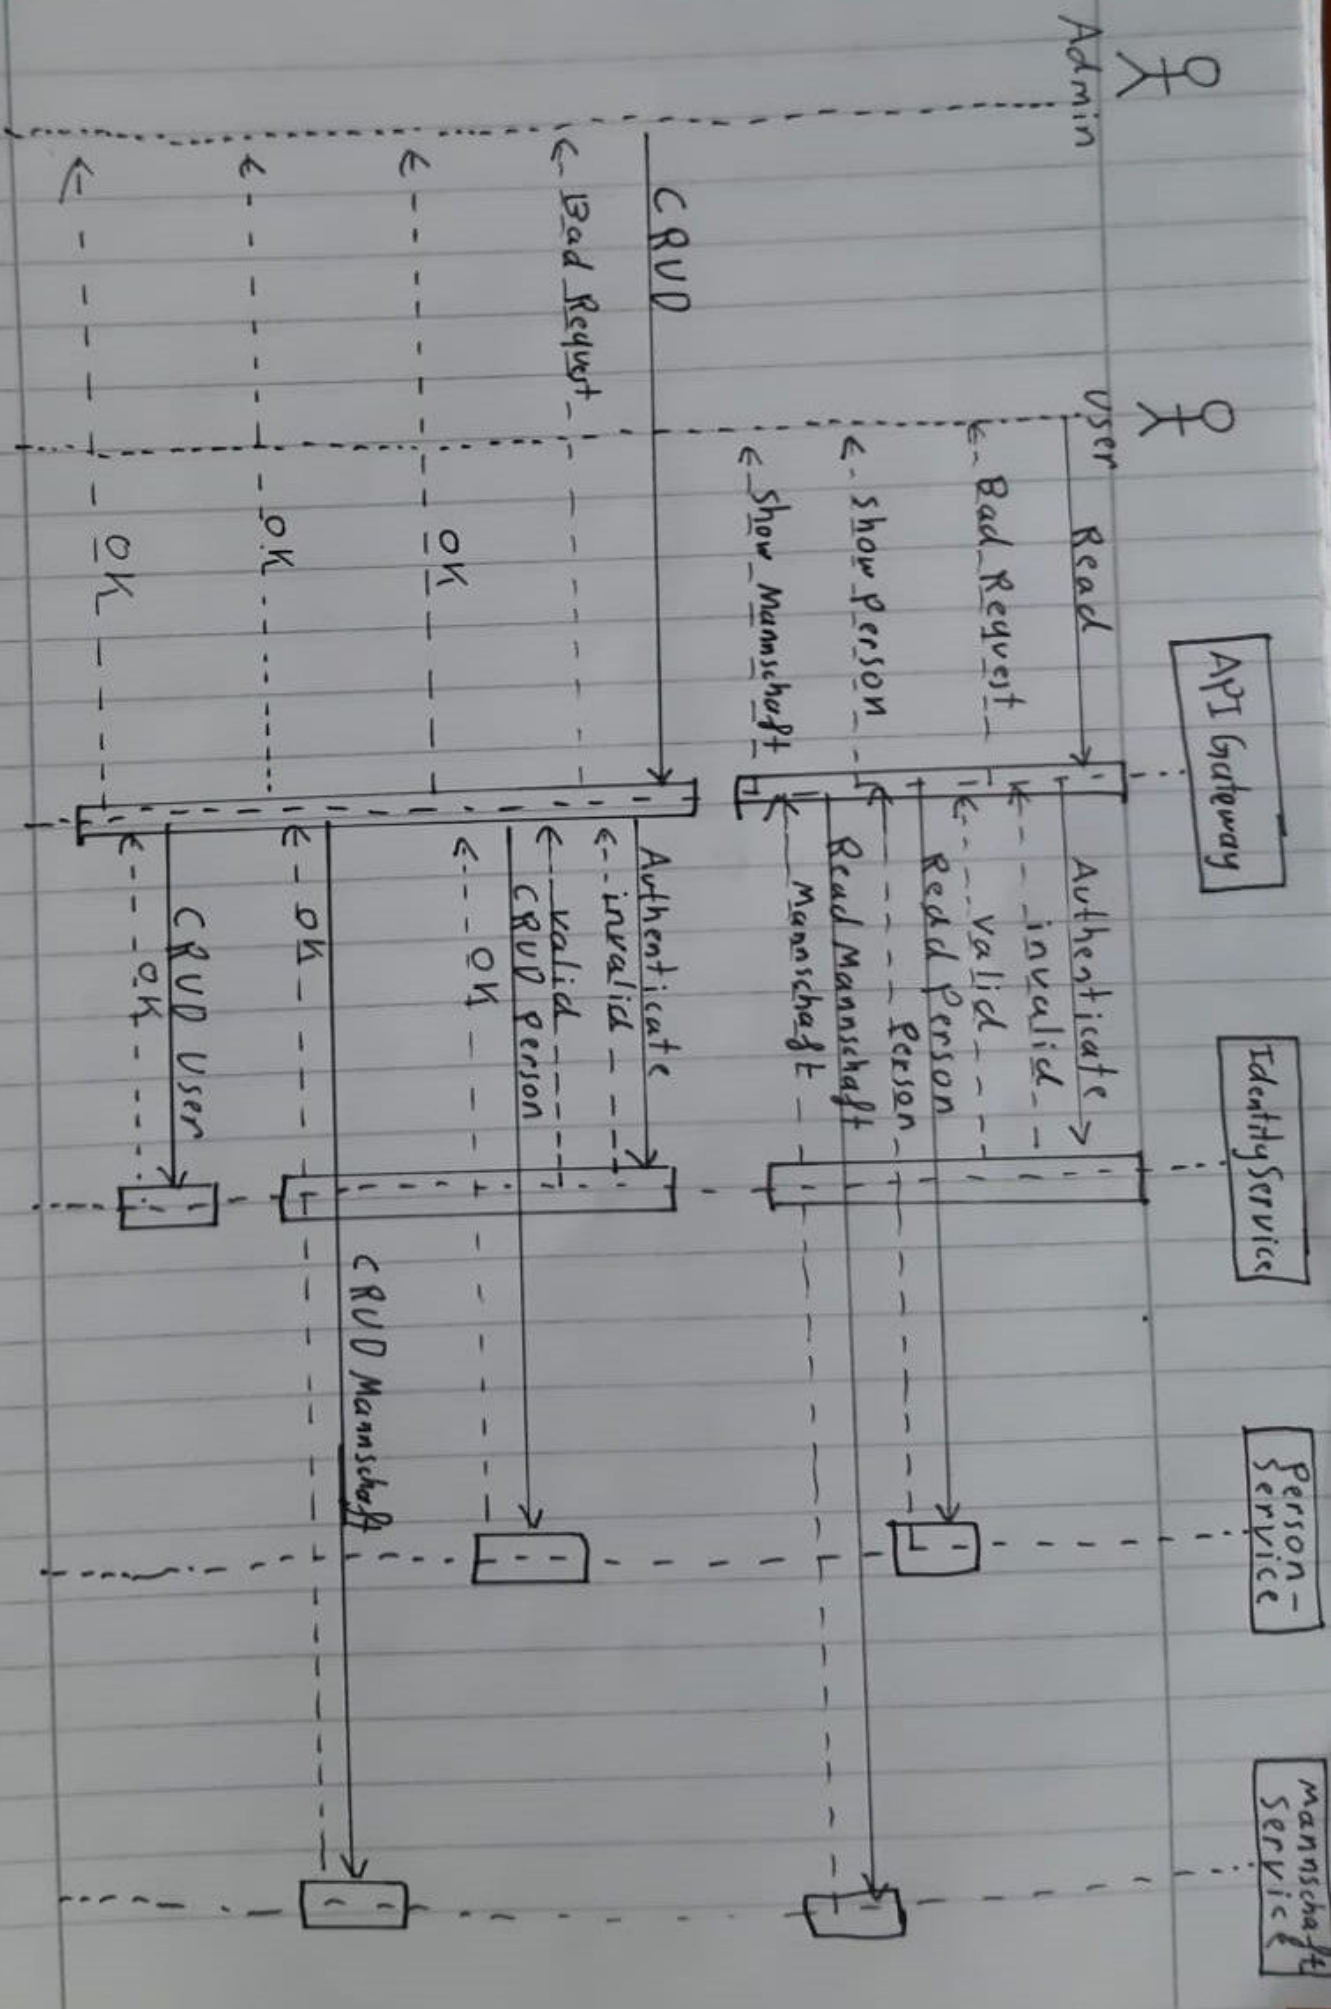 Admin
User
API Gateway
IdentityService
Person-
Service
Mannschaft
Service
Read
Authenticate
Bad Request
invalid
valid
Read Person
Show Person
Person
Read Mannschaft
Show Mannschaft
Mannschaft
CRUD
Authenticate
Bad Request
invalid
valid
CRUD Person
OK
OK
CRUD Mannschaft
OK
OK
CRUD User
OK
OK